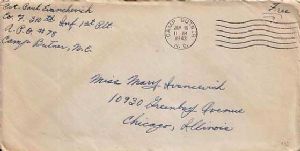 Pvt. Paul
Co. F, 310th Inf 1st Plt
A.P.O. #78
Camp Butner, N.C.
CAMP BUTNER
11 AM
N.C.
Free
Miss Mary Ivancevich
10930 Greenbay Avenue
Chicago, Illinois